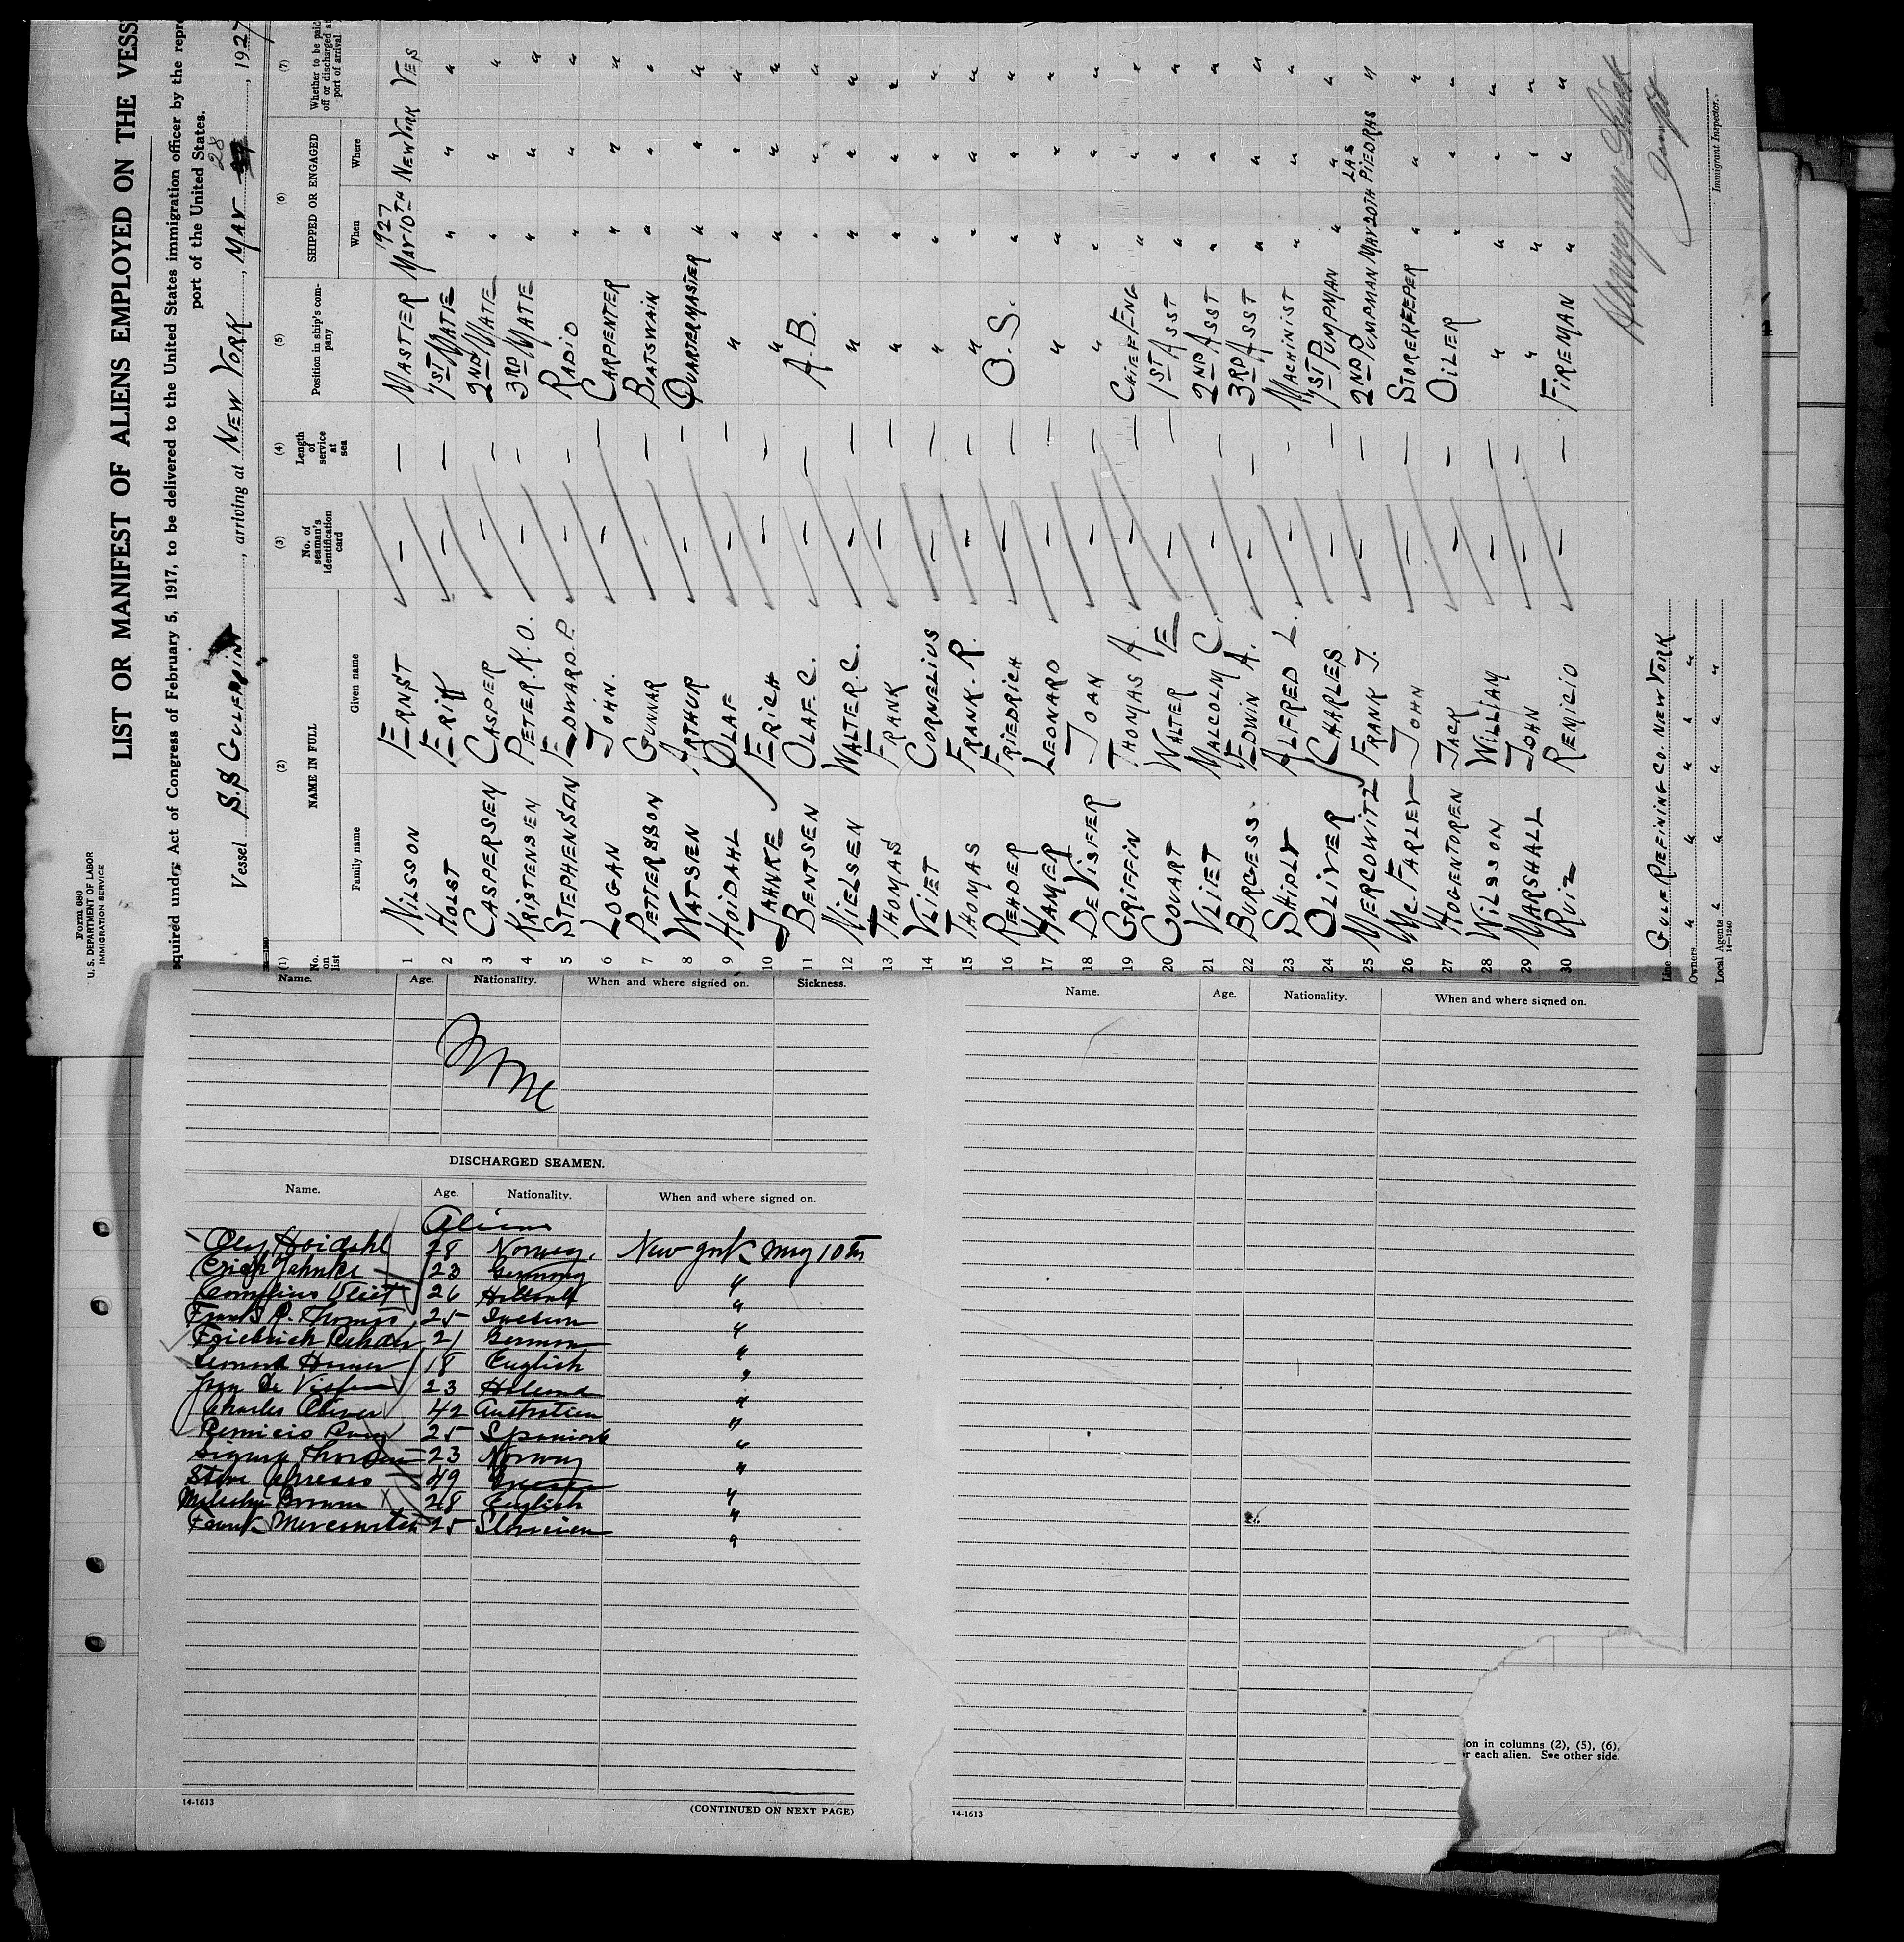 Form 680
U. S. DEPARTMENT OF LABOR
IMMIGRATION SERVICE
LIST OR MANIFEST OF ALIENS EMPLOYED ON THE VESS
equired under Act of Congress of February 5, 1917, to be delivered to the United States immigration officer by the repr
port of the United States.
Vessel S.S GULFPOINT, arriving at NEW YORK, MAY 28, 1927
(1) (2) (3) (4) (5) (6) (7)
No. on list NAME IN FULL No. of seaman's identification card Length of service at sea Position in ship's company SHIPPED OR ENGAGED Whether to be paid off or discharged at port of arrival
Family name Given name When Where
1 NILSSON ERNST — — MASTER 1927 MAY 10TH NEW YORK YES
2 HOLST ERIK — — 1ST MATE " " "
3 CASPERSEN CASPER — — 2ND MATE " " "
4 KRISTENSEN PETER. K. O. — — 3RD MATE " " "
5 STEPHENSON EDWARD. P. — — RADIO " " "
6 LOGAN JOHN. — — CARPENTER " " "
7 PETTERSSON GUNNAR — — BOATSWAIN " " "
8 WATSEN ARTHUR — — QUARTERMASTER " " "
9 HOIDAHL OLAF — — " " " "
10 JAHNKE ERICH — — " " " "
11 BENTSEN OLAF. C. — — A.B. " " "
12 NIELSEN WALTER. C. — — " " " "
13 THOMAS FRANK — — " " " "
14 VLIET CORNELIUS — — " " " "
15 THOMAS FRANK. R. — — " " " "
16 REHDER FRIEDRICH — — O.S. " " "
17 HAMER LEONARD — — " " " "
18 DE VISFER JOAN — — " " " "
19 GRIFFIN THOMAS A. — — CHIEF ENG " " "
20 COUART WALTER E — — 1ST ASST " " "
21 VLIET MALCOLM C. — — 2ND ASST " " "
22 BURGESS. EDWIN A. — — 3RD ASST " " "
23 SHIPLY ALFRED L. — — MACHINIST " " "
24 OLIVER CHARLES — — 1ST PUMPMAN " " "
25 MERCOWITZ FRANK J. — — 2ND PUMPMAN MAY 20TH LAS PIEDRAS "
26 MC. FARLEY JOHN — — STOREKEEPER " " "
27 HOGENTOREN JACK — — OILER " " "
28 WILSSON WILLIAM — — " " " "
29 MARSHALL JOHN — — " " " "
30 RUIZ REMICIO — — FIREMAN " " "
Line GULF REFINING CO. NEW YORK
Owners " " " " "
Local Agents " " " " "
14—1240
Immigrant Inspector.
Name. Age. Nationality. When and where signed on. Sickness.
DISCHARGED SEAMEN.
Name. Age. Nationality. When and where signed on.
Aliens
Olaf Hoidahl 28 Norway. New York May 10th
Erich Jahnke 23 Germany "
Cornelius Vliet 26 Holland "
Frank R. Thomas 25 "
Friedrich Rehder 21 German "
Leonard Hamer 18 English "
Joan De Visfer 23 Holland "
Charles Oliver 42 Australian "
Remicio Ruiz 25 Spaniard "
23 Norway "
Steve 49 "
Brown 28 English "
Frank Mercowitch 25 "
14-1613
(CONTINUED ON NEXT PAGE)
Name. Age. Nationality. When and where signed on.
14-1613
ion in columns (2), (5), (6),
r each alien. See other side.